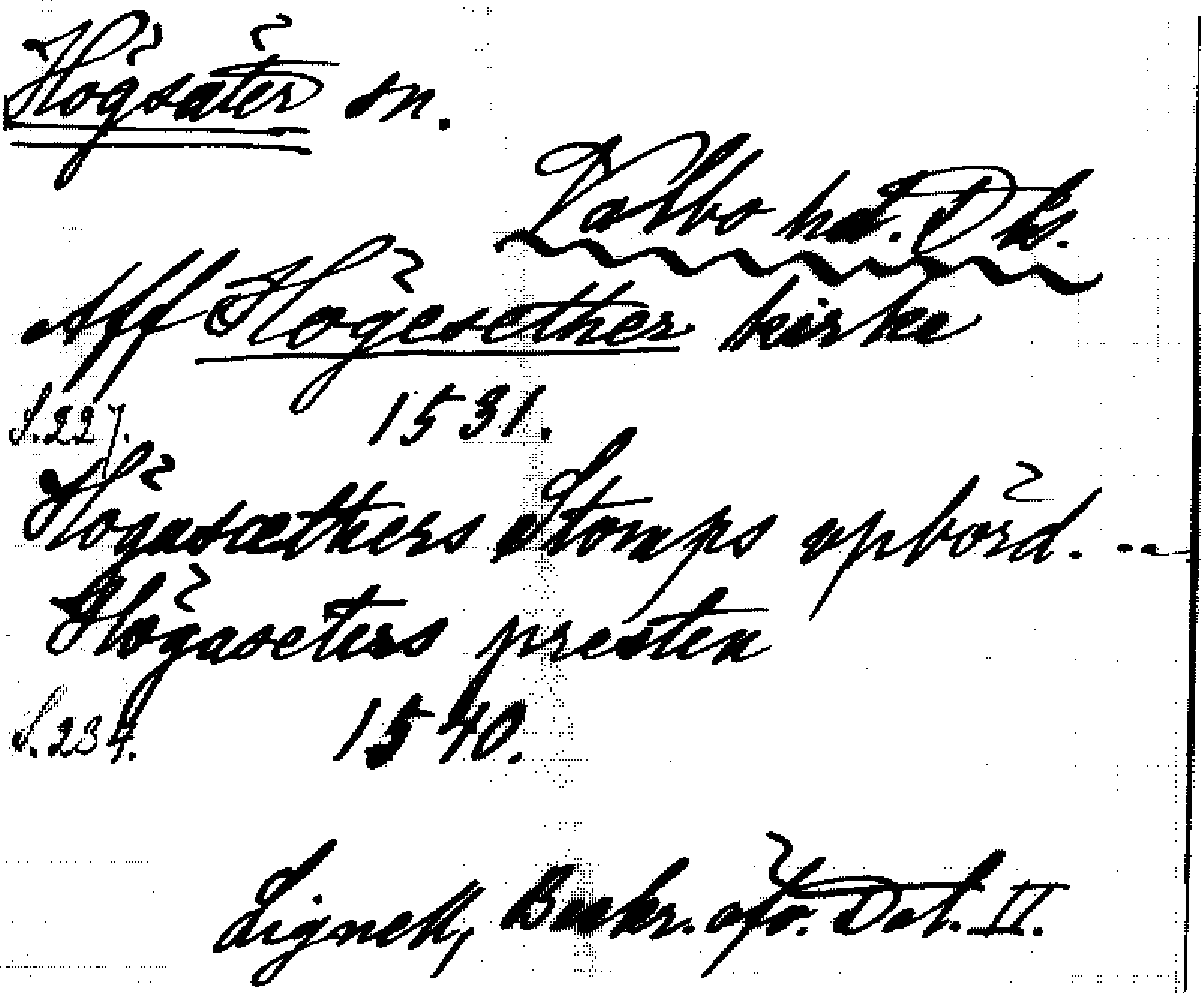 Högsäter sn.
Valbo hd. Dls.
Aff Högesether kirke
S.227. 1531.
Högasæthers Stomps upbörd. ---
Högaseters presten
S.234. 1540.
Lignell, Beskr. öfv. Dal. II.